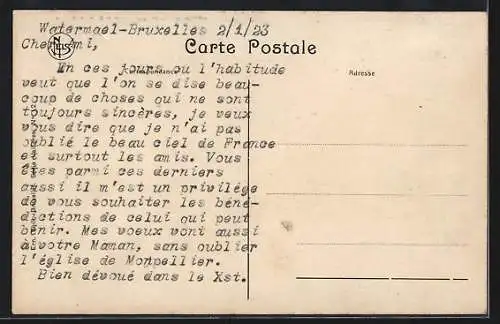 Watermael-Bruxelles 2/1/23
Carte Postale
Cher ami,
En ces jours ou l'habitude
Correspondance
Adresse
veut que l'on se dise beau-
coup de choses qui ne sont
toujours sincères, je veux
vous dire que je n'ai pas
oublié le beau ciel de France
et surtout les amis. Vous
êtes parmi ces derniers
aussi il m'est un privilége
de vous souhaiter les béné-
dictions de celui qui peut
bénir. Mes voeux vont aussi
à votre Maman, sans oublier
l'église de Monpellier.
Bien dévoué dans le Xst.